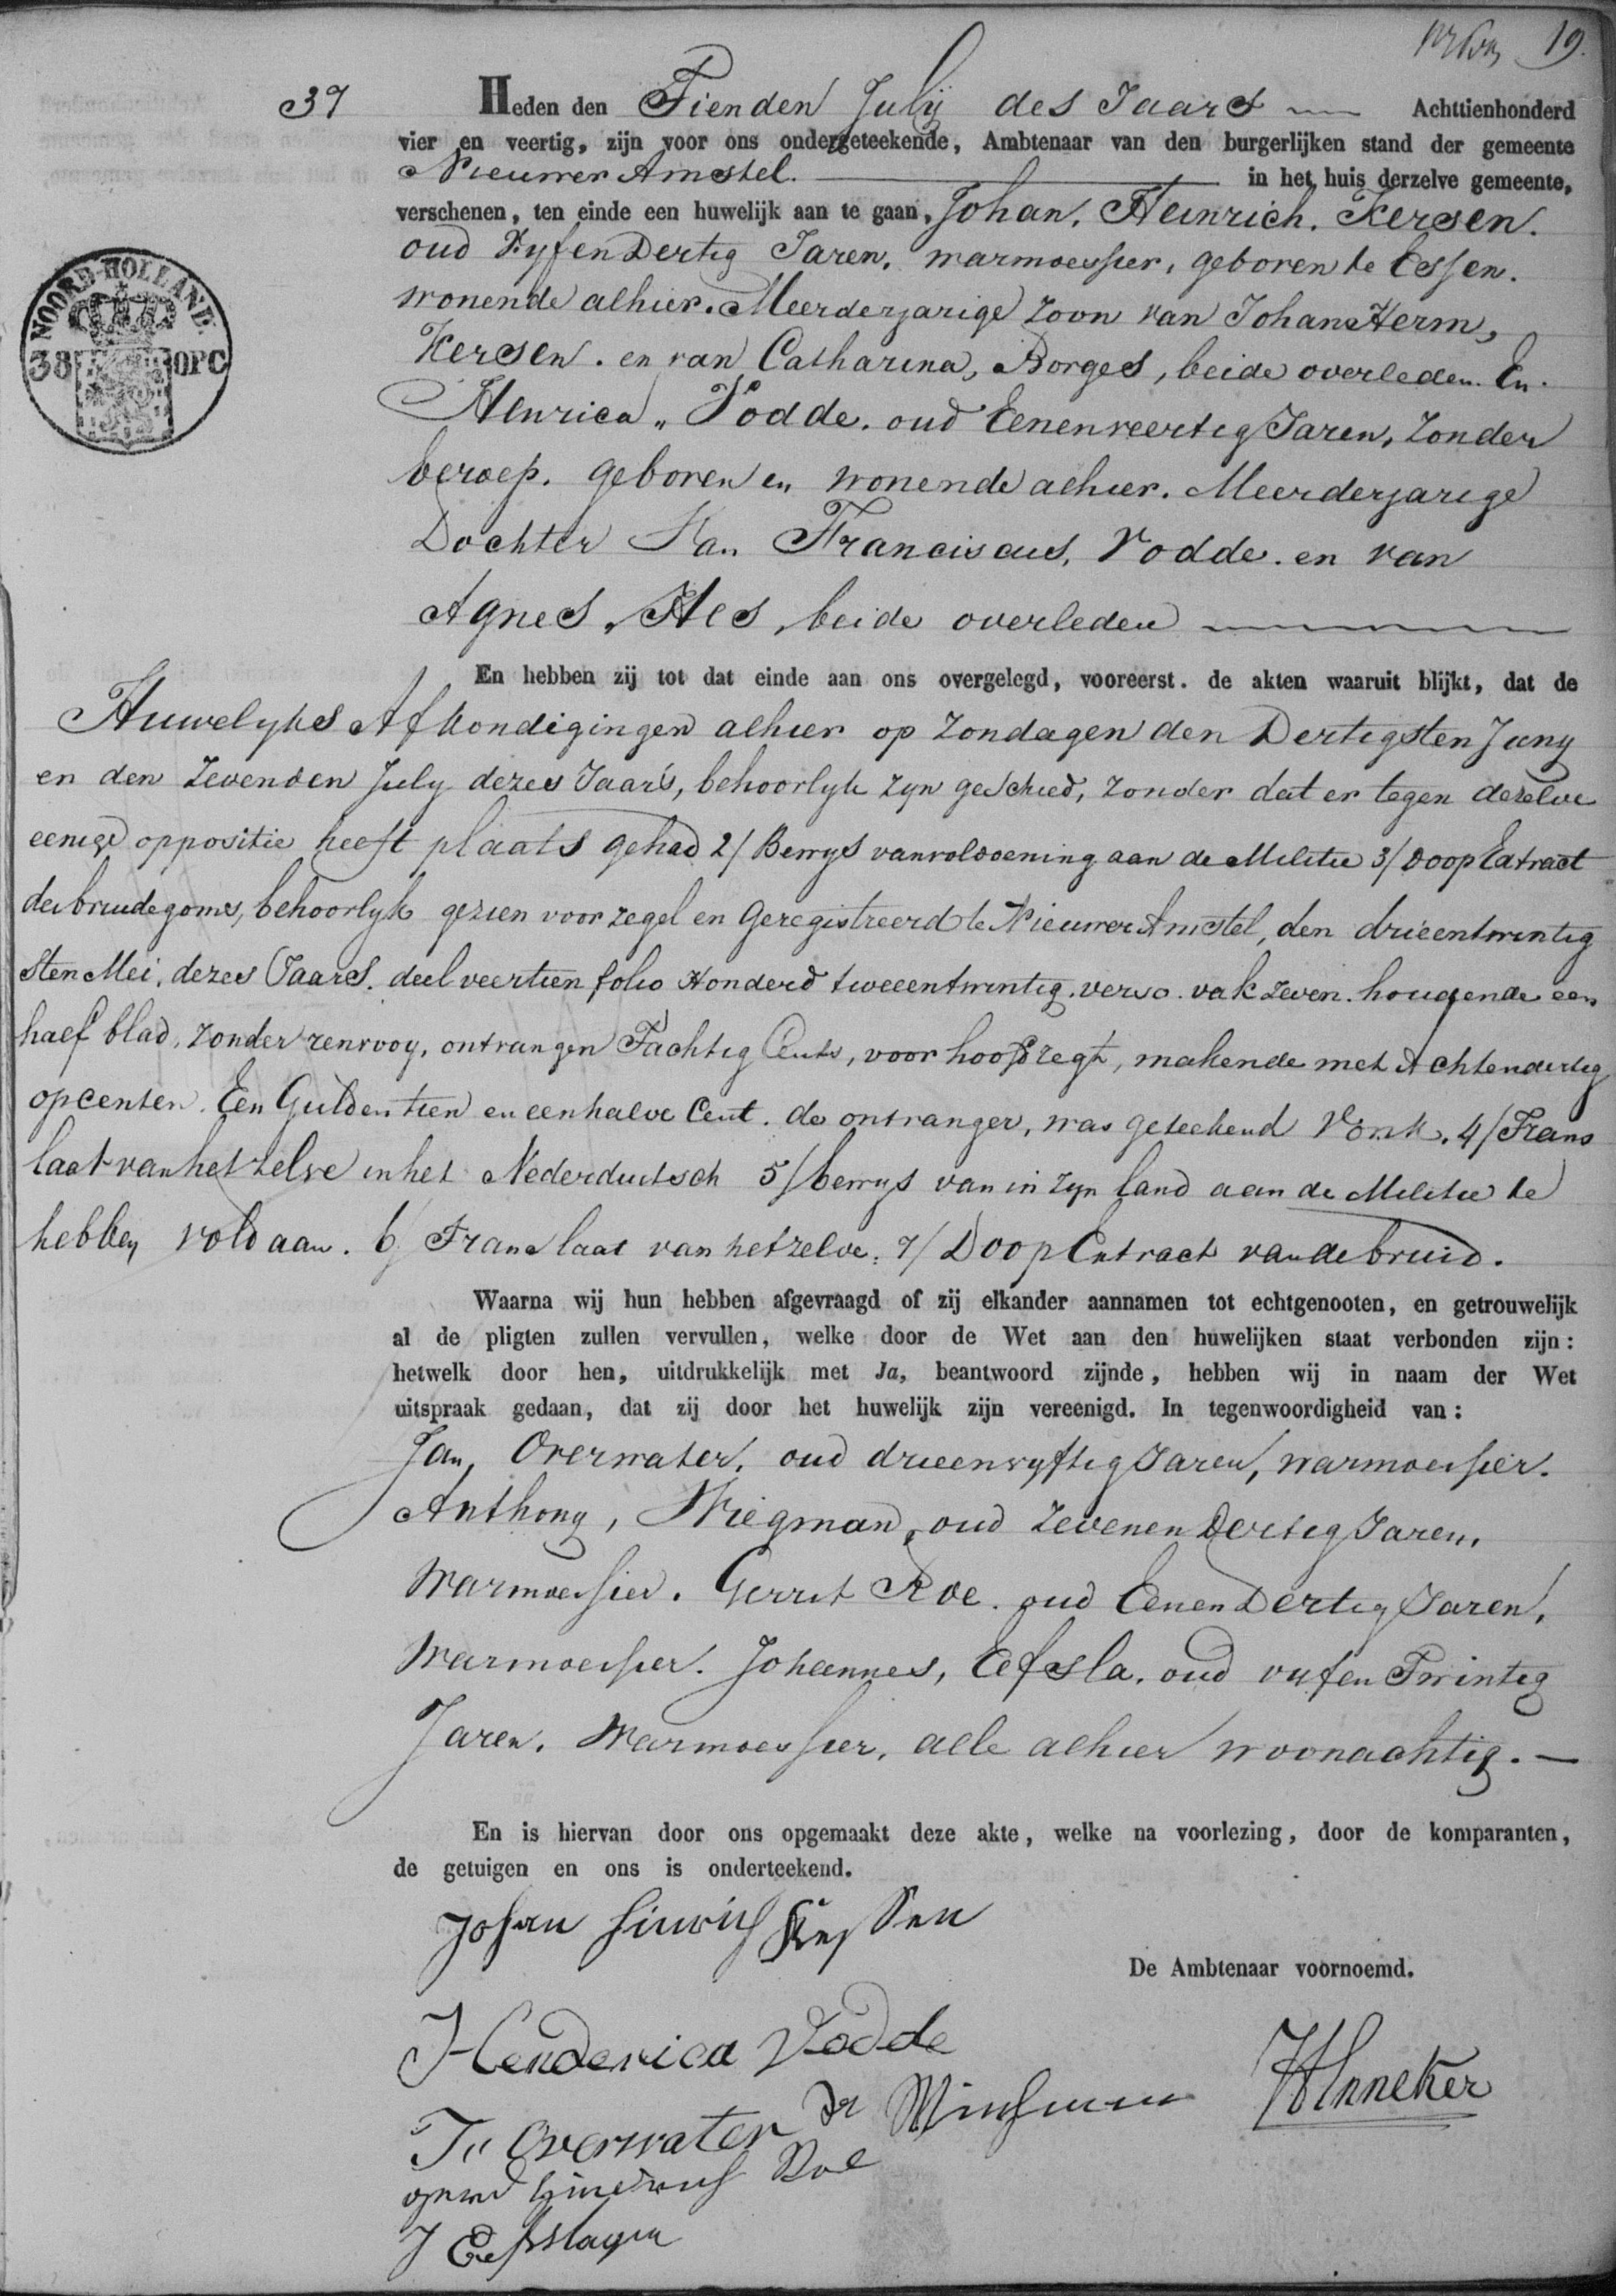 19.
37
Heden den Tienden Julij des Jaars Achttienhonderd
vier en veertig, zijn voor ons ondergeteekende, Ambtenaar van den burgerlijken stand der gemeente
Nieuwer Amstel. in het huis derzelve gemeente,
verschenen, ten einde een huwelijk aan te gaan, Johan, Heinrich, Kersen.
oud Vyfendertig Jaren, warmoessier, geboren te Essen.
wonende alhier. Meerderjarige Zoon van Johan Herm,
Kersen. en van Catharina, Borges, beide overleden. En.
Henrica „ Vodde. oud Eenenveertig Jaren, Zonder
beroep. geboren en wonende alhier. Meerderjarige
Dochter Van Franciscus, Vodde. en van
Agnes, Hes, beide overleden
En hebben zij tot dat einde aan ons overgelegd, vooreerst. de akten waaruit blijkt, dat de
Huwelyks Afkondigingen alhier op Zondagen den Dertigsten Juny
en den Zevenden July dezes Jaars, behoorlyk zyn geschied, Zonder dat er tegen dezelve
eenige oppositie heeft plaats gehad 2/ Bewys van voldoening aan de Militie 3/ Doop Extract
des bruidegoms, behoorlyk gezien voor zegel en Geregistreerd te Nieuwer Amstel, den drieentwintig
sten Mei, dezes Jaars. deel veertien folio Honderd tweeentwintig. verso. vak zeven. houdende een
half blad, Zonder renvooy, ontvangen Tachtig Cents, voor hoofdregt, makende met Achtendertig
opcenten. Een Gulden tien en een halve Cent. de ontvanger, was geteekend Vonk. 4/ Trans
laat van het zelve in het Nederduitsch 5/ bewys van in zyn land aan de Militie te
hebben voldaan. 6/ Translaat van hetzelve. 7/ Doop Extract van de bruid.
Waarna wij hun hebben afgevraagd of zij elkander aannamen tot echtgenooten, en getrouwelijk
al de pligten zullen vervullen, welke door de Wet aan den huwelijken staat verbonden zijn:
hetwelk door hen, uitdrukkelijk met Ja, beantwoord zijnde, hebben wij in naam der Wet
uitspraak gedaan, dat zij door het huwelijk zijn vereenigd. In tegenwoordigheid van:
Jan, Overwater, oud drieenvyftig Jaren, warmoessier.
Anthony, Wiegman, oud Zevenen Dertig Jaren,
Warmoessier. Gerrit Roe. oud Eenen Dertig Jaren,
Warmoessier. Johannes, Eefsla. oud vyfen Twintig
Jaren. Warmoessier, alle alhier woonachtig. —
En is hiervan door ons opgemaakt deze akte, welke na voorlezing, door de komparanten,
de getuigen en ons is onderteekend.
Johan Hinrich Kessen
De Ambtenaar voornoemd.
Henderica Vodde
Jn Overwater
Roe
J Eefsslagen
NOORD-HOLLAND.
38 OPC